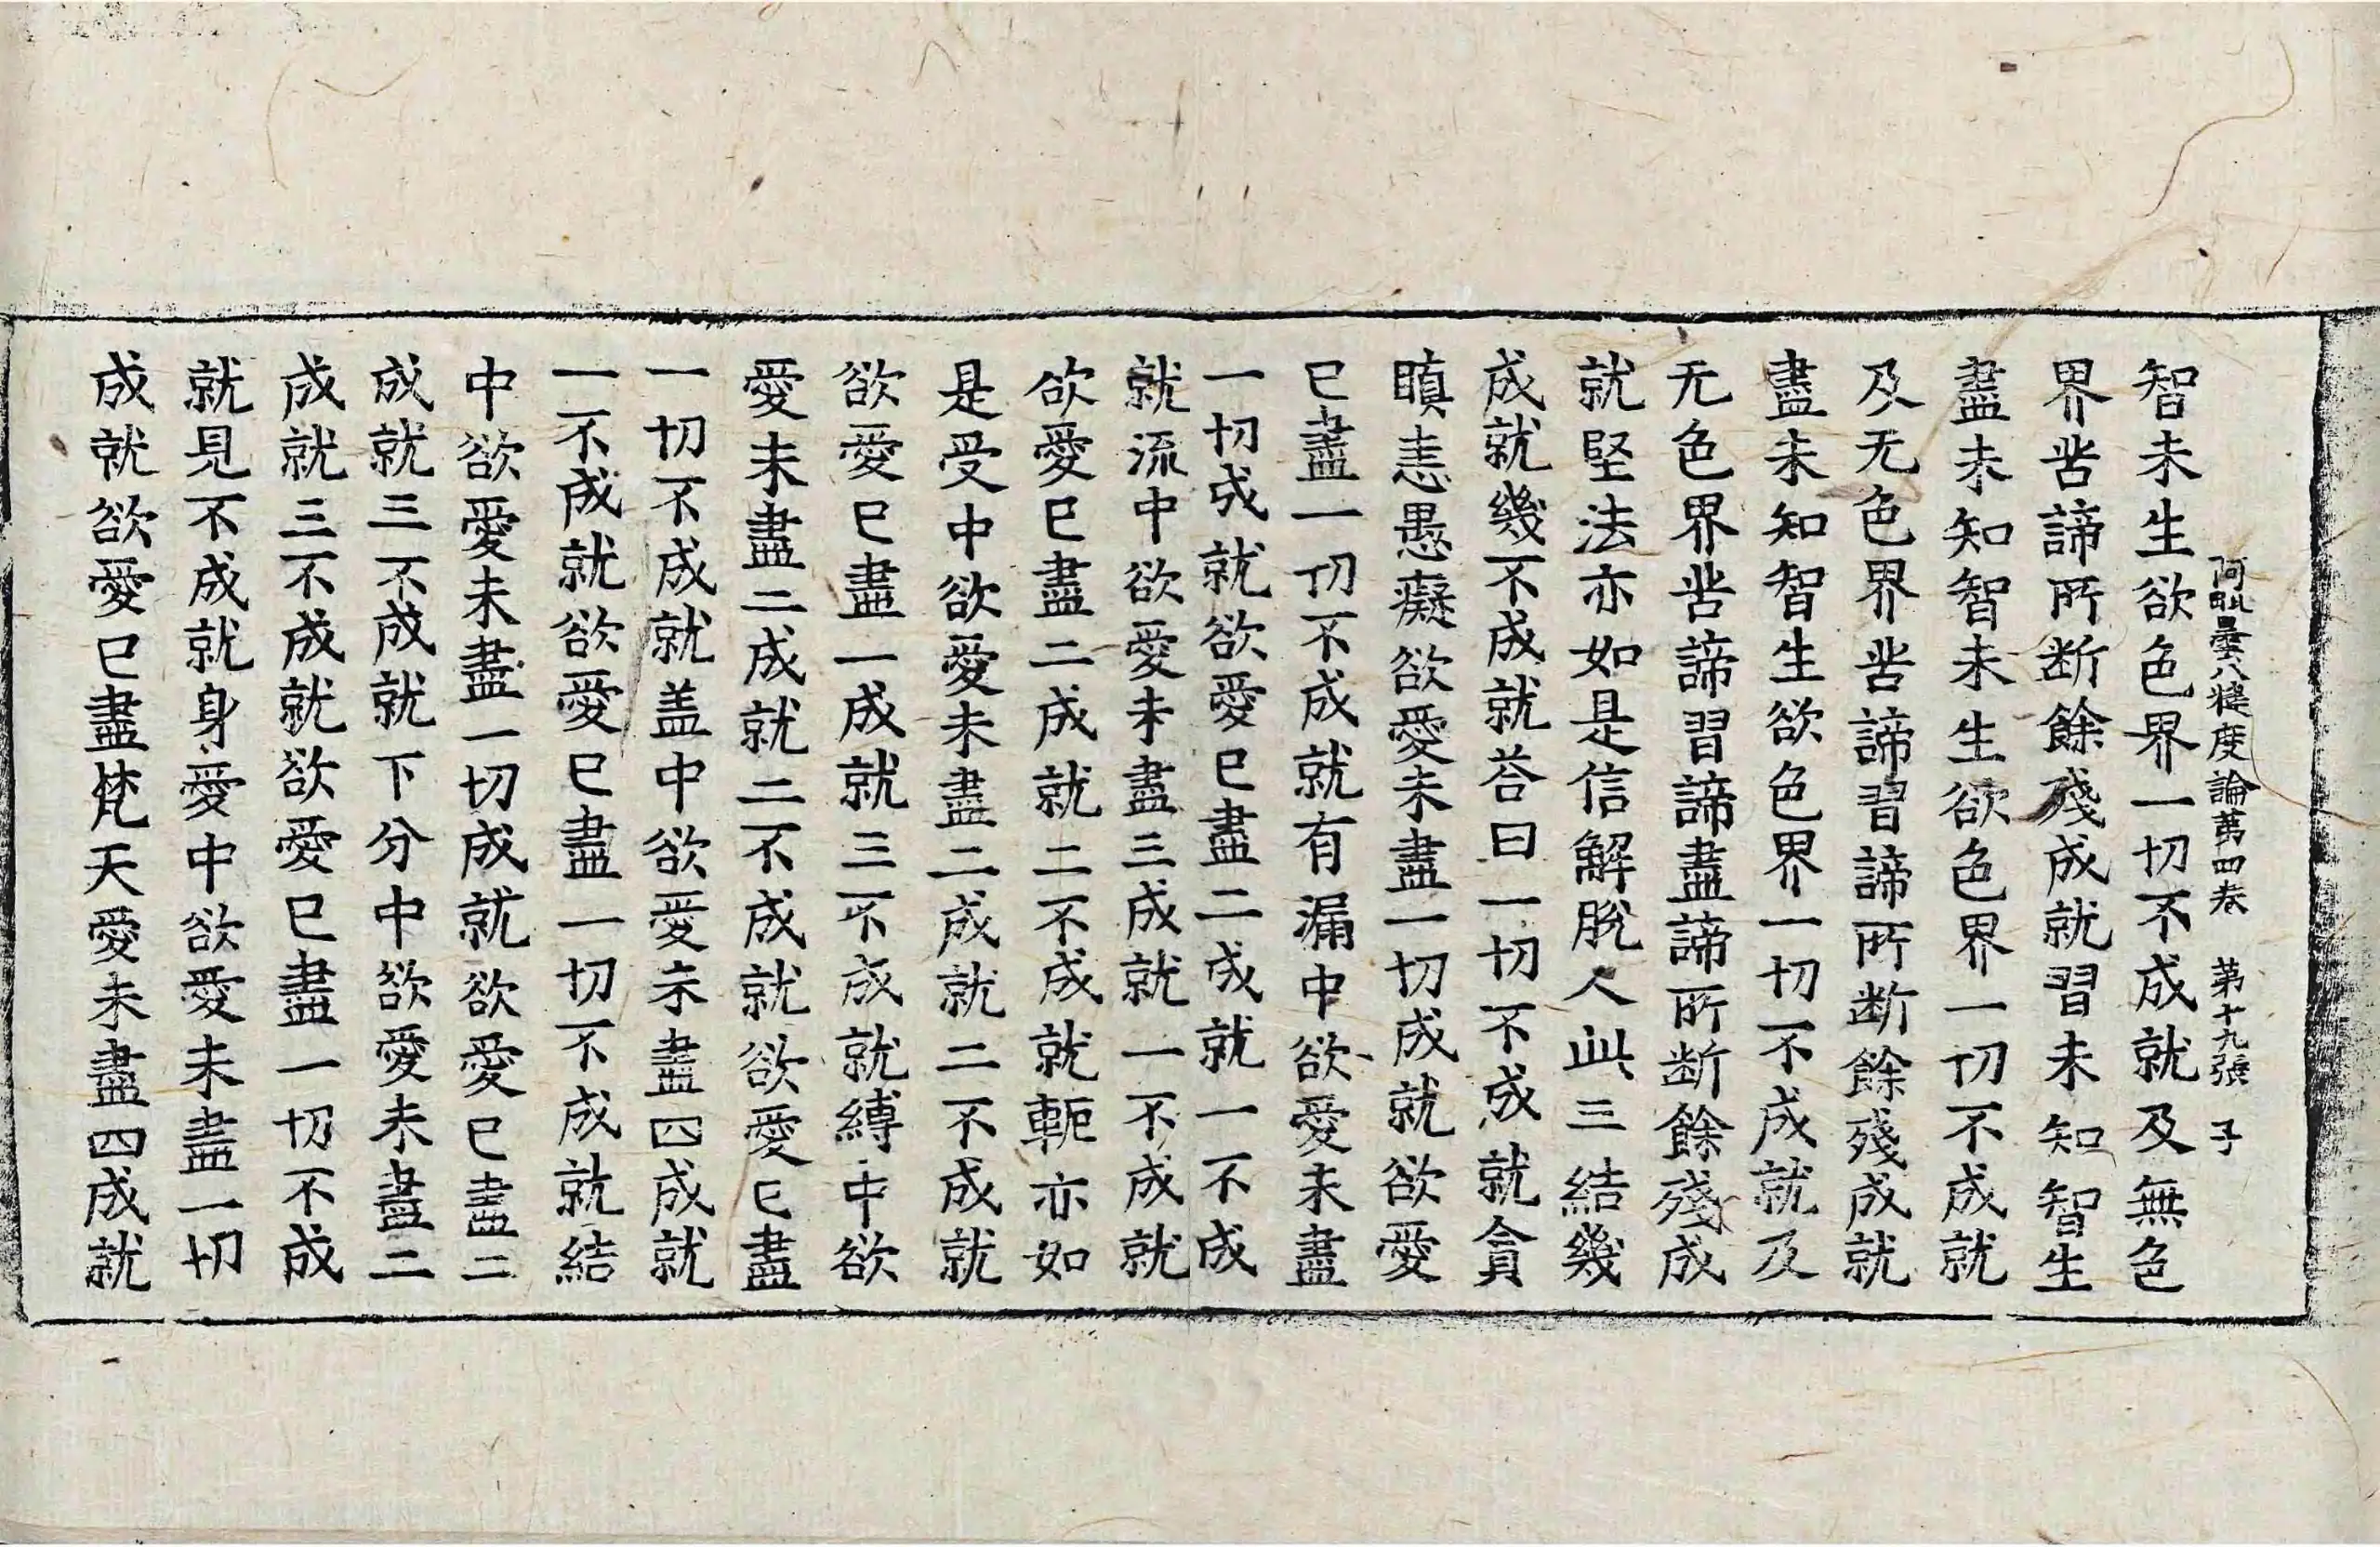 阿毗曇八犍度論苐四卷 第十九張 子
智未生欲色界一切不成就及無色
界苦諦所断餘殘成就習未知智生
盡未知智未生欲色界一切不成就
及无色界苦諦習諦所断餘殘成就
盡未知智生欲色界一切不成就及
无色界苦諦習諦盡諦所断餘殘成
就堅法亦如是信解脫人此三結幾
成就幾不成就荅曰一切不成就貪
瞋恚愚癡欲愛未盡一切成就欲愛
已盡一切不成就有漏中欲愛未盡
一切成就欲愛已盡二成就一不成
就流中欲愛未盡三成就一不成就
欲愛已盡二成就二不成就軛亦如
是受中欲愛未盡二成就二不成就
欲愛已盡一成就三不成就縛中欲
愛未盡二成就二不成就欲愛已盡
一切不成就盖中欲愛未盡四成就
一不成就欲愛已盡一切不成就結
中欲愛未盡一切成就欲愛已盡二
成就三不成就下分中欲愛未盡二
成就三不成就欲愛已盡一切不成
就見不成就身愛中欲愛未盡一切
成就欲愛已盡梵天愛未盡四成就